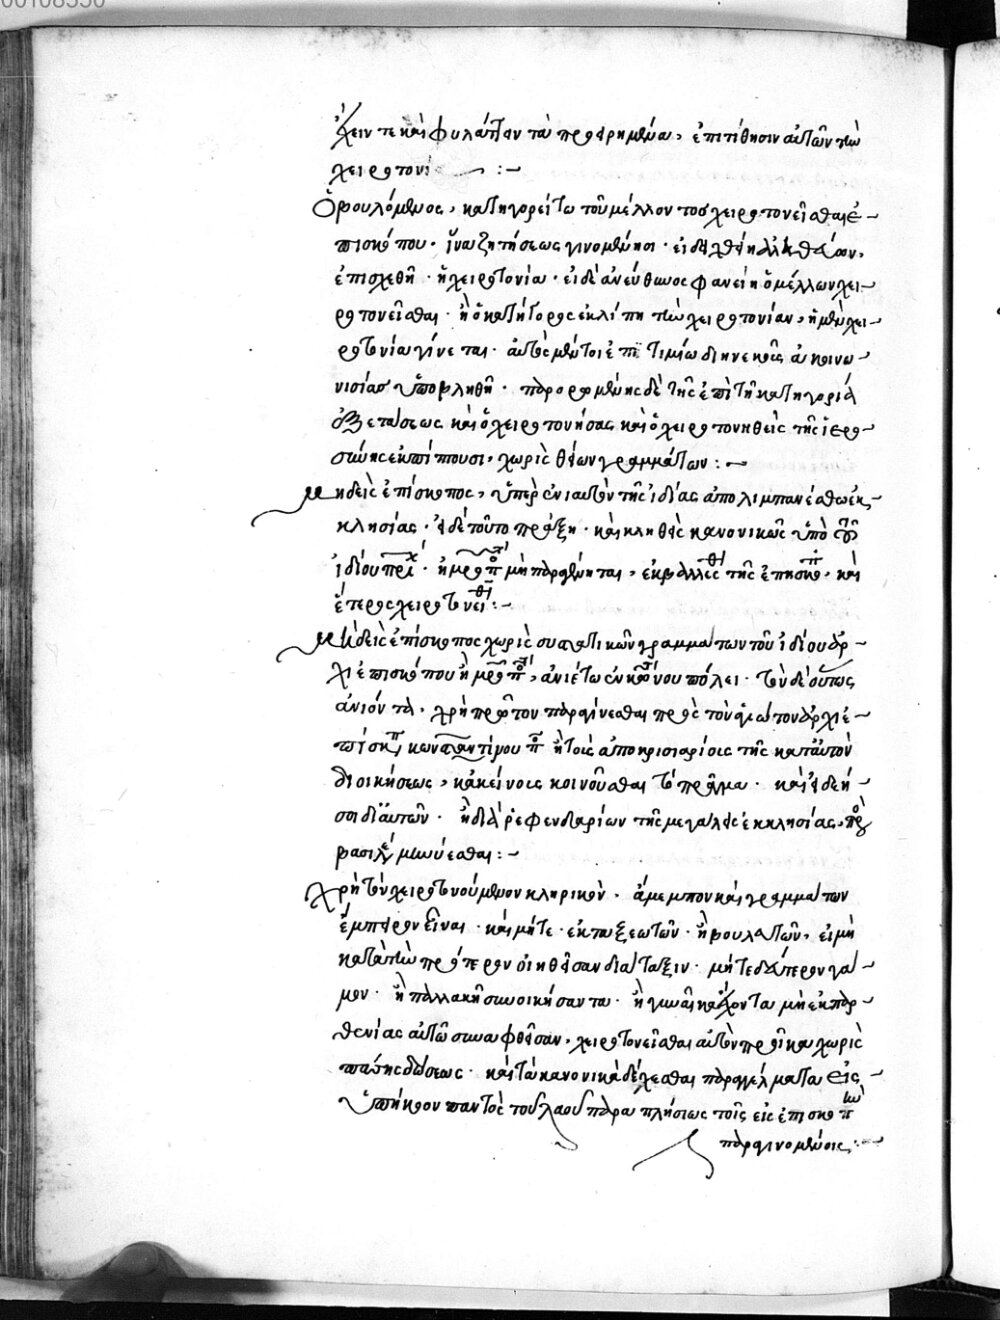 00108550
ἔχειν τε καὶ φυλάττειν τὰ προειρημένα, ἐπιτίθησιν αὐτῶ τὴν
χειροτονί :~
Ὁ βουλόμενος, κατηγορείτω τοῦ μέλλοντος χειροτονεῖσθαι ἐ-
πισκόπου. ἵνα ζητήσεως γινομένης.
ἐπισχεθῆ ἡ χειροτονία. εἰ δὲ ἀνεύθυνος φανείη ὁ μέλλων χει-
ροτονεῖσθαι. ἢ ὁ κατήγορος ἐκλίπη τὴν χειροτονίαν, ἡ μὲν χει-
ροτονία γίνεται. αὐτὸς μέντοι ἐπιτιμίω διηνεκοῦς ἀκοινω-
νισίας ὑποβληθῆ. παρορωμένης δὲ τῆς ἐπὶ τῆ κατηγορία
ἐξετάσεως καὶ ὁ χειροτονήσας καὶ ὁ χειροτονηθεὶς τῆς ἱερω-
σύνης ἐκπίπτουσι, χωρὶς θείων γραμμάτων :~
Μηδεὶς ἐπίσκοπος, ὑπὲρ ἐνιαυτὸν τῆς ἰδίας ἀπολιμπανέσθω ἐκ-
κλησίας. εἰ δὲ τοῦτο πράξη. καὶ κληθεὶς κανονικῶς ὑπὸ τοῦ
ἰδίου πρι. ἢ μρο π μὴ παραγένηται, ἐκβάλλεσθ τῆς ἐπισκο, καὶ
ἕτερος χειροτονείσθ :~
Μηδεὶς ἐπίσκοπος χωρὶς συστατικῶν γραμμάτων τοῦ ἰδίου ἀρ-
χιεπισκόπου ἢ μρο π, ἀνιέτω ἐν πόλει. τὸν δὲ οὕτως
ἀνιόντα, χρὴ πρῶτον παραγίνεσθαι πρὸς τὸν ἀρχιε-
πίσκπ κωνσταντίνου π ἢ τοῖς ἀποκρισιαρίοις τῆς κατ' αὐτὸν
διοικήσεως, κἀκείνοις κοινοῦσθαι τὸ πρᾶγμα. καὶ εἰ δεή-
σοι δι' αὐτῶν. ἢ διὰ ῥεφενδαρίων τῆς μεγάλης ἐκκλησίας, πρὸς
βασιλέα μηνύεσθαι :~
Χρὴ τὸν χειροτονούμενον κληρικὸν. ἄμεμπτον καὶ γραμμάτων
ἔμπειρον εἶναι. καὶ μήτε ἐκ ταξεωτῶν. ἢ βουλευτῶν, εἰ μὴ
κατὰ τὴν πρότερον ῥηθεῖσαν διάταξιν. μήτε δεύτερον γά-
μον. ἢ παλλακὴ συνοικήσαντα. ἢ γυναῖκα ἔχοντα μὴ ἐκ παρ-
θενίας αὐτῶ συναφθεῖσαν, χειροτονεῖσθαι αὐτὸν προῖκα χωρὶς
πάσης δόσεως. καὶ τὰ κανονικὰ δέχεσθαι παραγγέλματα εἰς
ὑπήκοον παντὸς τοῦ λαοῦ παραπλησίως τοῖς εἰς ἐπισκοπὴν
παραγινομένοις :~